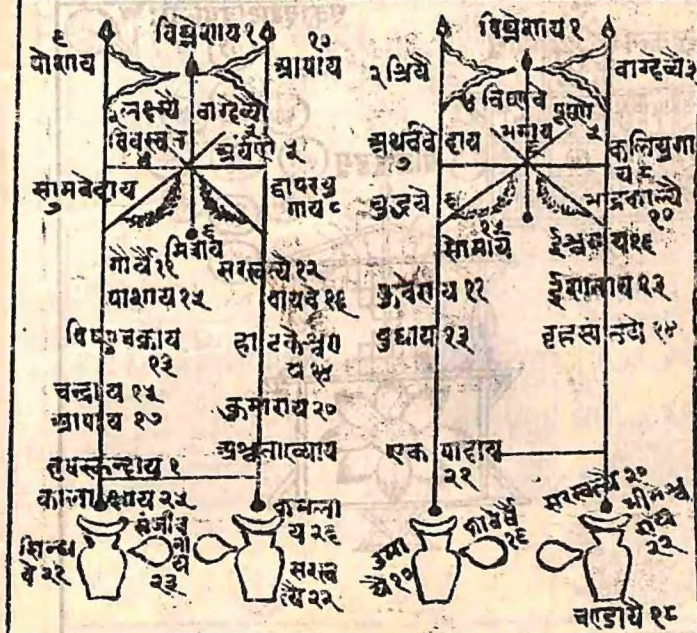 विघ्नेशाय १
६
पोशाय
१७
आपाय
लक्ष्म्यै
वाग्देव्यै
विवस्वत
अर्यम्णे ५
सामवेदाय
द्वापरयु
गाय ८
६
मित्राय
गौर्यै ११
सरस्वत्यै १२
पाशाय १५
वायवे १६
विष्णुचक्राय
१३
हाटकेश्वरा
य १४
चन्द्राय १५
आपाय १७
कुमाराय २०
अश्वताख्याय
वृषस्कन्दाय १
काला
कमला
य २६
सिन्ध
वे २१
संजीव
२३
सरस्व
त्यै २२
विघ्नेशाय १
२ श्रियै
वाग्देव्यै ३
४ विष्णवे
पूष्णे
५
भगाय
अथर्ववेदाय
७
कलियुगा
य ८
बुद्धये ६
भद्रकाल्यै
१०
सोमाय
ईश्वराय १६
कुबेराय ११
ईशानाय १२
बुधाय १३
बृहस्पतये १४
एक पादाय
२१
सरस्वत्यै २०
भीमेश्व
राय
२२
उमा
यै १७
कावेर्यै
१६
चण्डाय १८